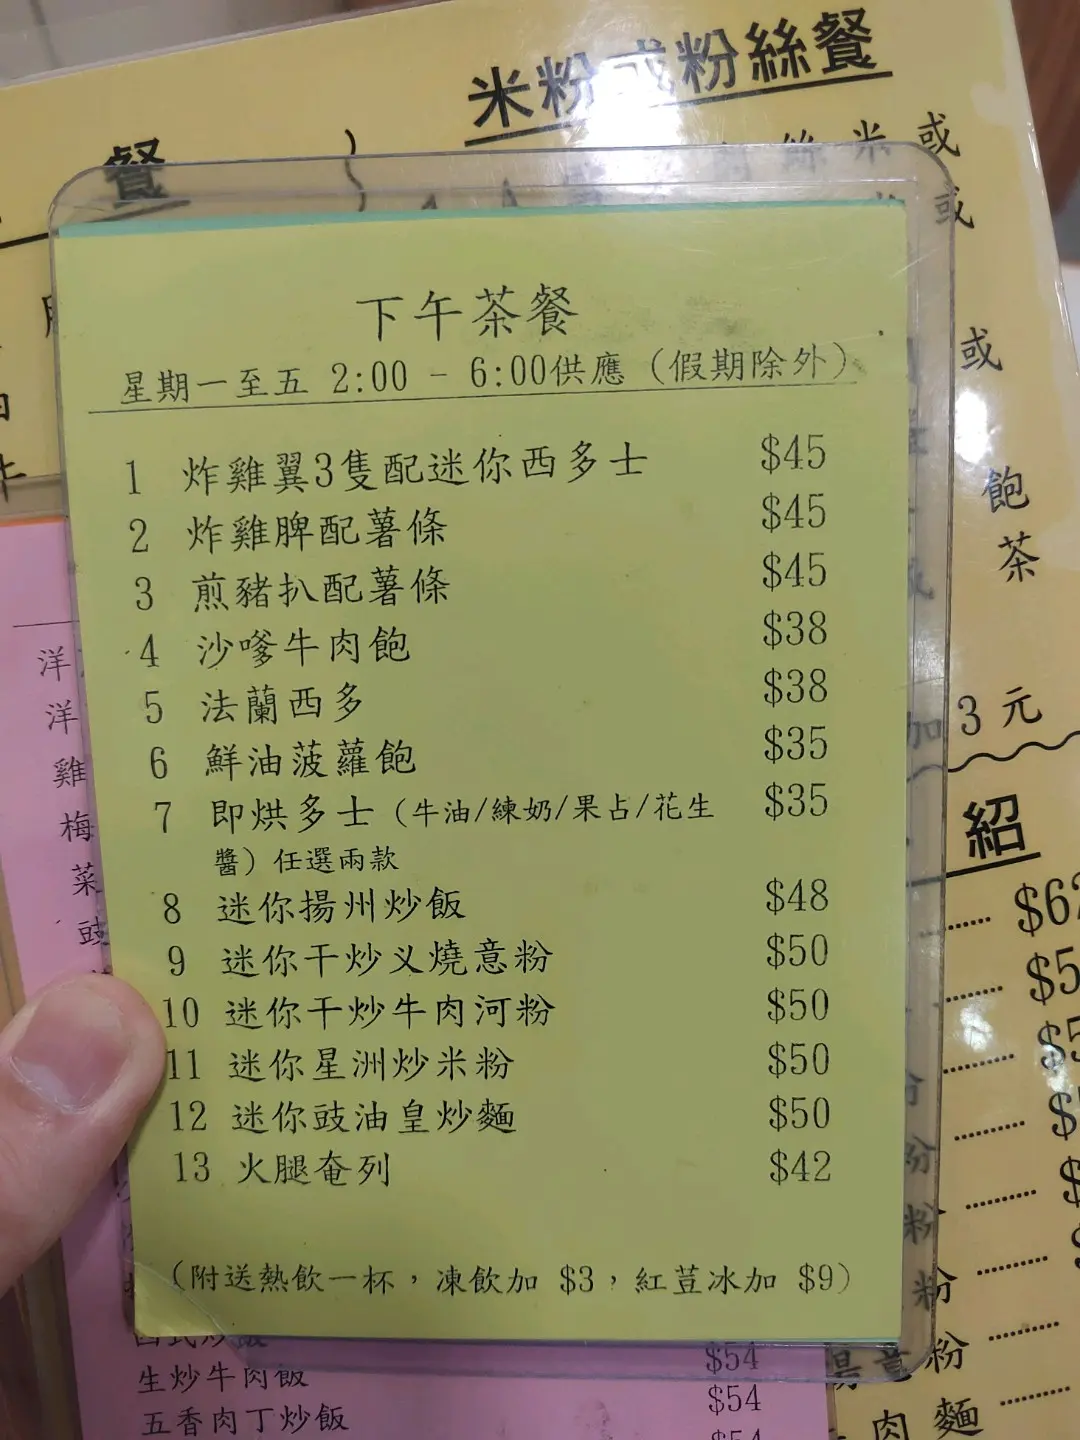 米粉或粉絲餐
餐
絲米或
或
或
飽
茶
加3元
紹
下午茶餐
星期一至五 2:00 - 6:00供應（假期除外）
1 炸雞翼3隻配迷你西多士 $45
2 炸雞脾配薯條 $45
3 煎豬扒配薯條 $45
4 沙嗲牛肉飽 $38
5 法蘭西多 $38
6 鮮油菠蘿飽 $35
7 即烘多士（牛油/練奶/果占/花生 $35
醬）任選兩款
8 迷你揚州炒飯 $48
9 迷你干炒义燒意粉 $50
10 迷你干炒牛肉河粉 $50
11 迷你星洲炒米粉 $50
12 迷你豉油皇炒麵 $50
13 火腿奄列 $42
（附送熱飲一杯，凍飲加 $3，紅荳冰加 $9）
洋
洋
雞
梅
菜
豉
粉
粉
粉
意粉
肉麵
$54
生炒牛肉飯 $54
五香肉丁炒飯